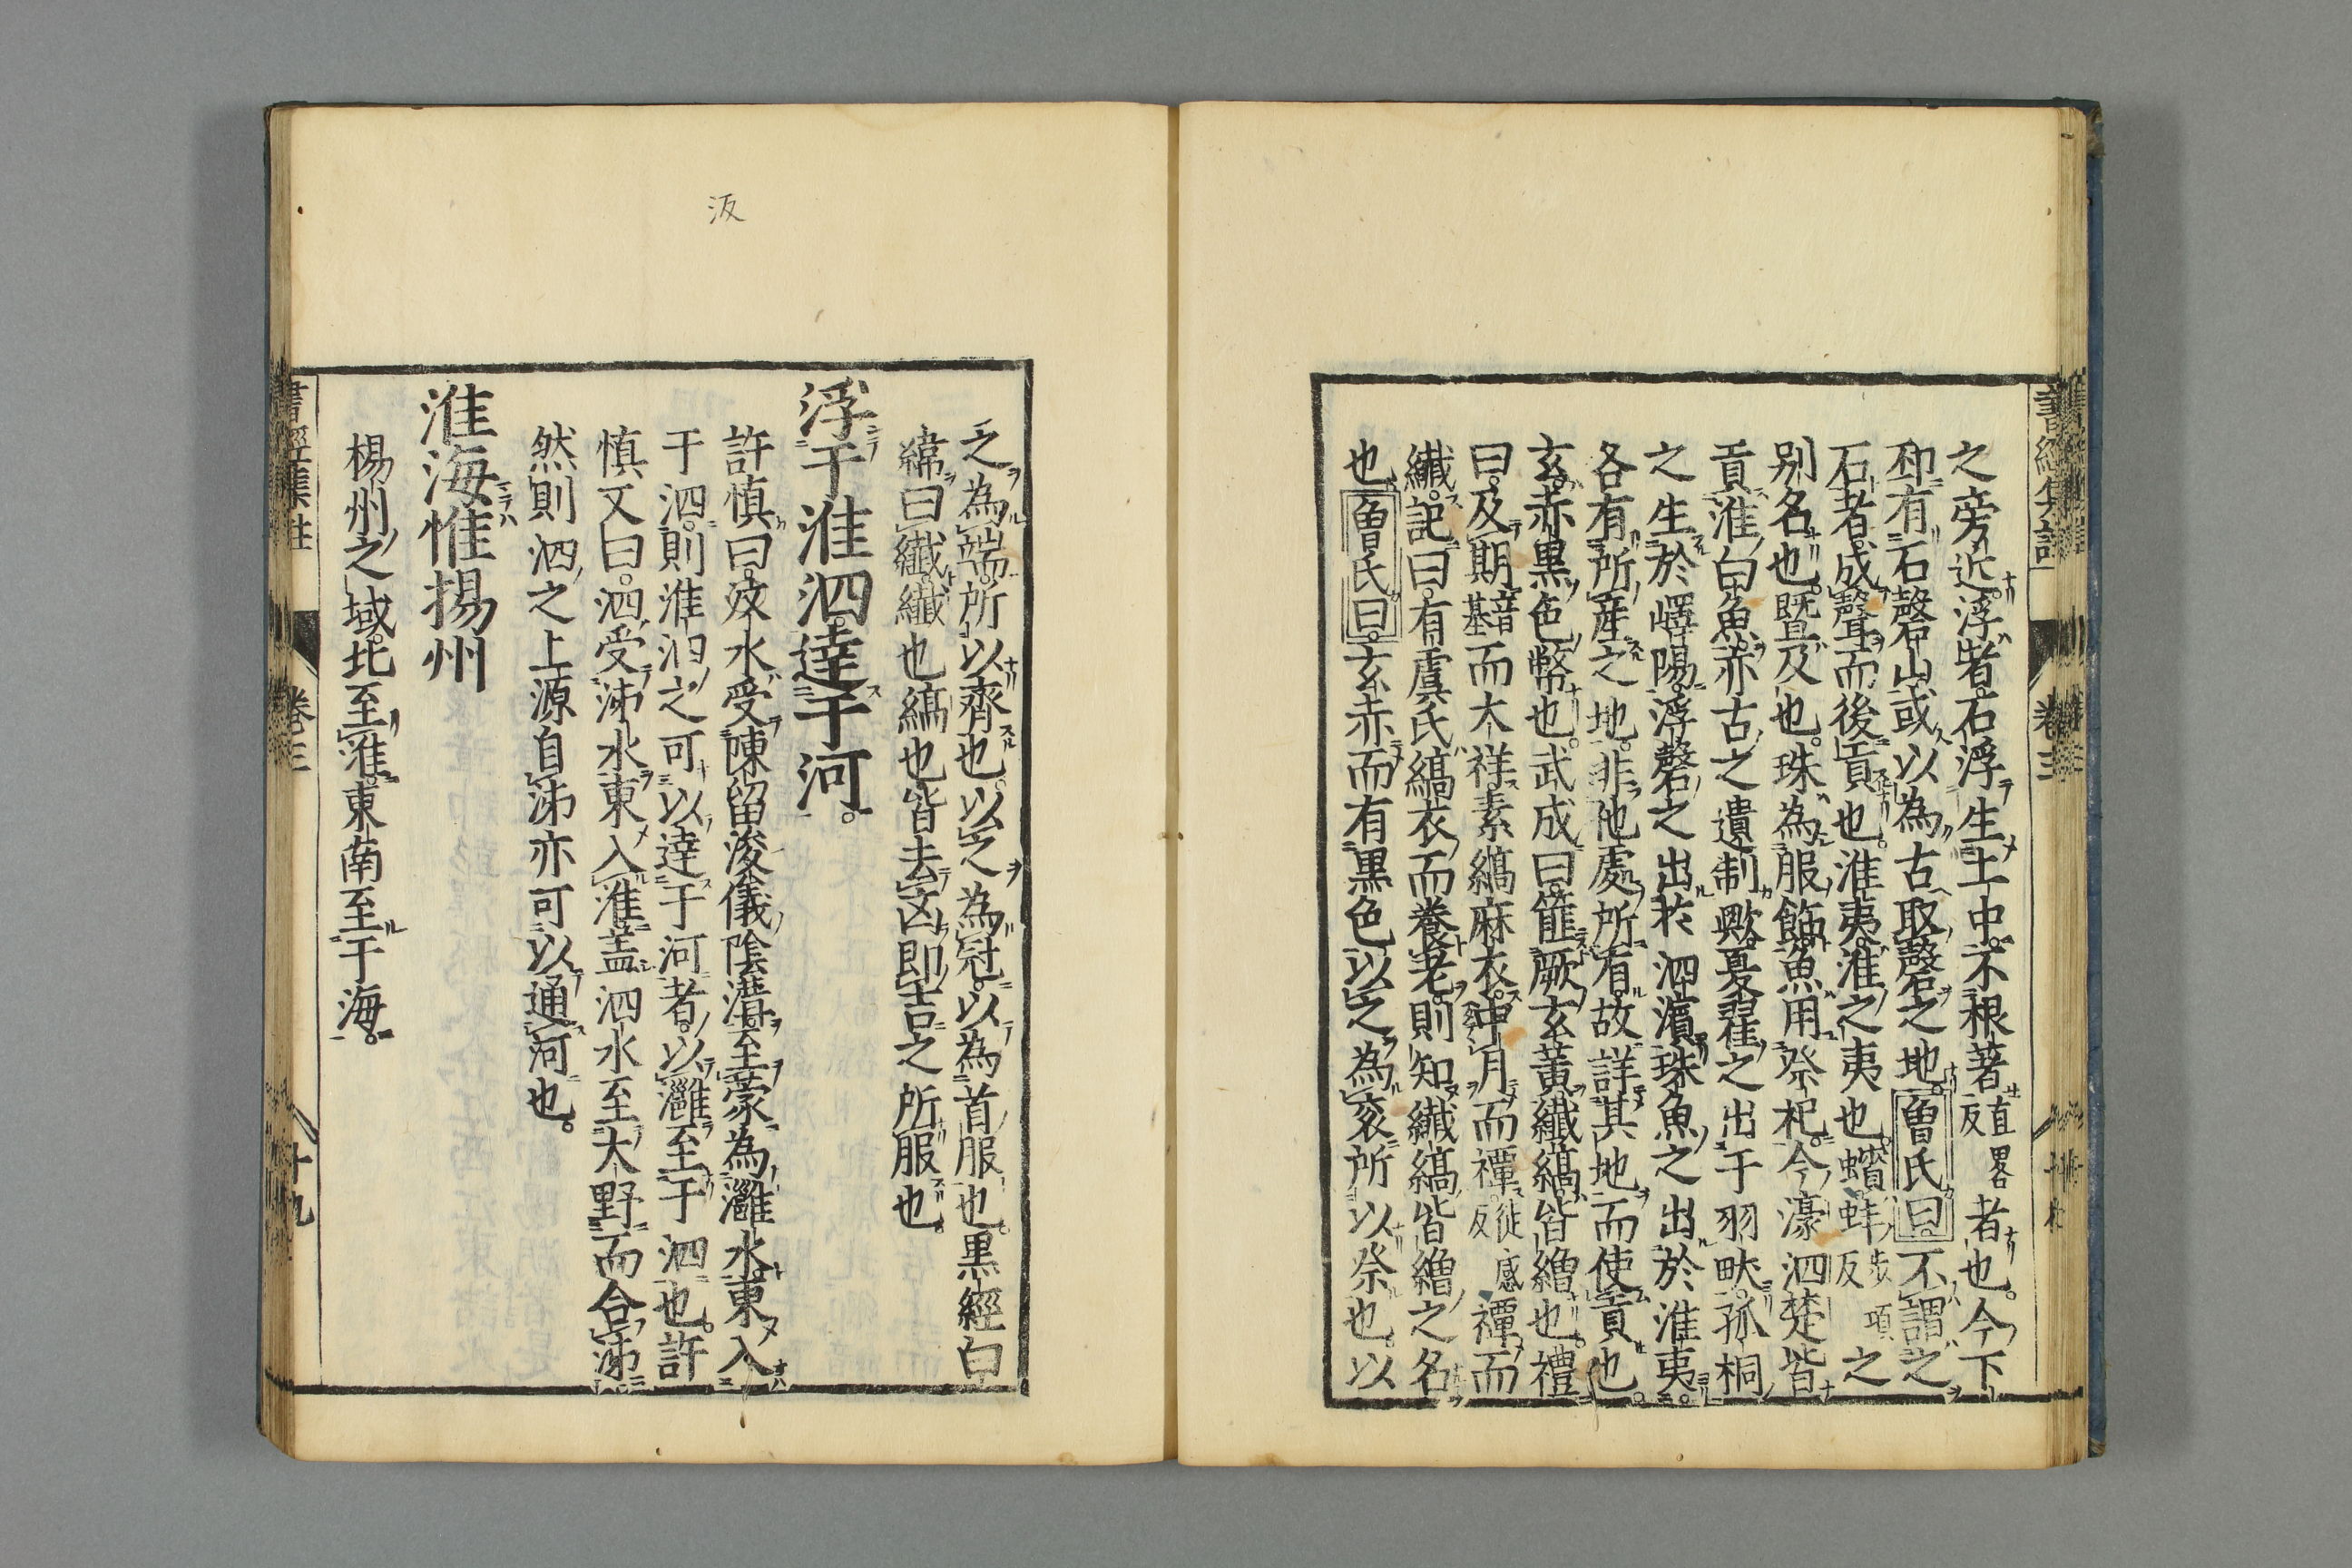 之旁近浮者石浮生土中不根著直畧反者也今下
邳有石磬山或以為古取磬之地曾氏曰不謂之
石者成聲而後貢也淮夷淮之夷也蠙蚌步項反之
别名也暨及也珠為服飾魚用祭祀今濠泗楚皆
貢淮白魚亦古之遺制歟夏翟之出于羽畎孤桐
之生於嶧陽浮磬之出於泗濱珠魚之出於淮夷
各有所產之地非他處所有故詳其地而使貢也
玄赤黒色幣也武成曰篚厥玄黃纖縞皆繒也禮
曰及期音基而大祥素縞麻衣中月而禫徒感反禫而
纖記曰有虞氏縞衣而養老則知纖縞皆繒之名
也曾氏曰玄赤而有黒色以之為衮所以祭也以
之為端所以齊也以之為冠以為首服也黒經白
緯曰纖纖也縞也皆去凶即吉之所服也
浮于淮泗達于河
許慎曰汳水受陳留浚儀陰溝至蒙為灉水東入
于泗則淮泗之可以達于河者以灉至于泗也許
慎又曰泗受泲水東入淮蓋泗水至大野而合泲
然則泗之上源自泲亦可以通河也
淮海惟揚州
楊州之域北至淮東南至于海
汳
書經集註
卷三
十九